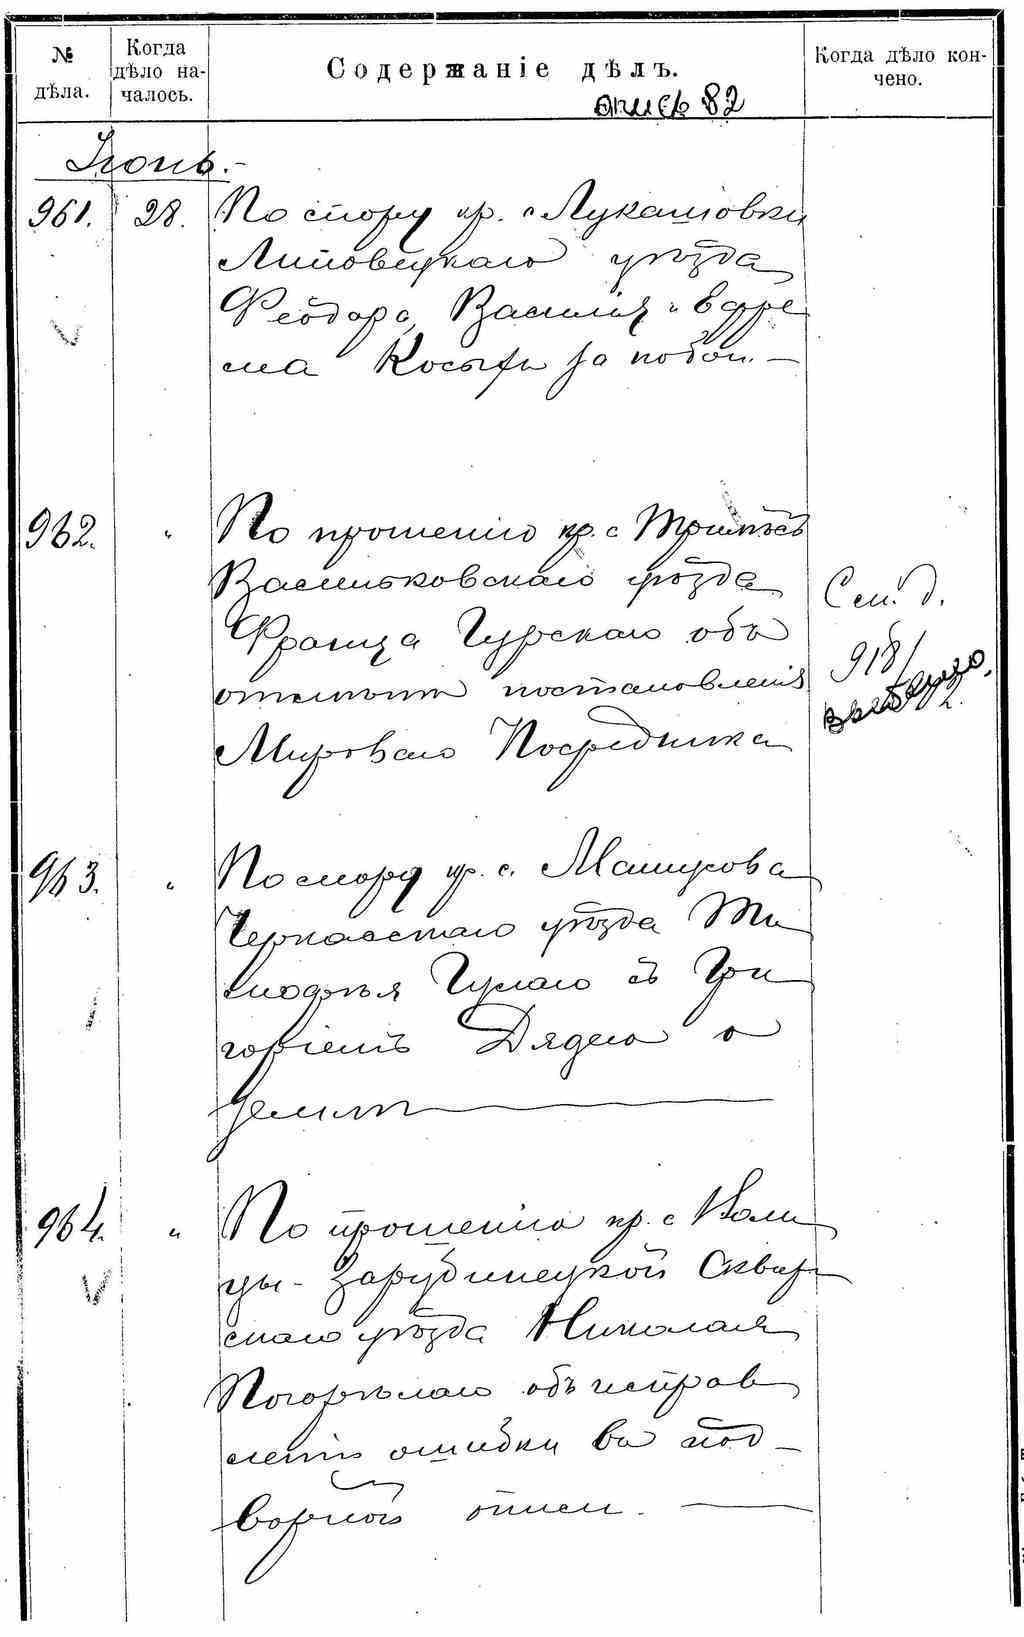 № дѣла.
Когда дѣло началось.
Содержаніе дѣлъ.
Когда дѣло кончено.
опись 82
Іюнь.-
961. 28. По спору кр. с Лукашовки
Липовецкаго уѣзда
Феодора, Василія и Ефре
ма Косыхъ за побои. —
962. " По прошенію кр. с
Васильковскаго уѣзда
Франца Гурскаго объ
отмѣнѣ постановленія
Мироваго Посредника
См. д.
918/
963. " По спору кр. с. Мошурова
Черкасскаго уѣзда Ти
мофея Гулаго съ Гри
горіемъ Дядею о
землѣ —
964. " По прошенію кр. с Воли
цы - Зарубинецкой Сквир
скаго уѣзда Николая
Погорѣлаго объ исправ
леніи ошибки въ под—
ворной описи. —